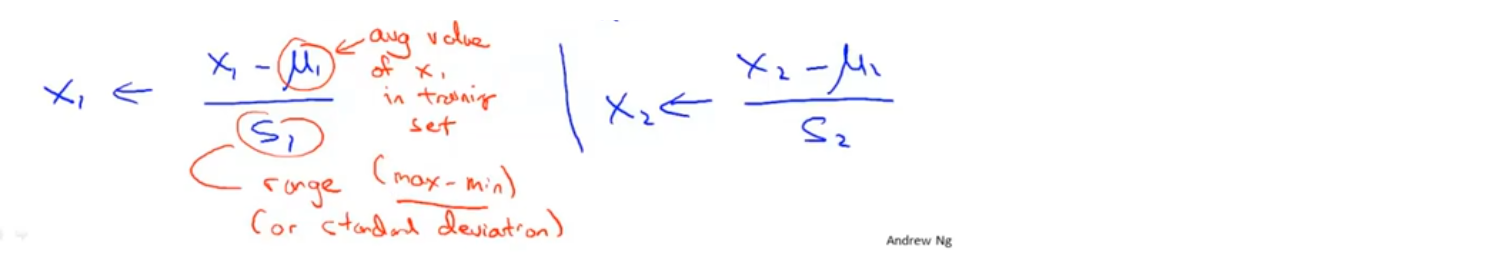 x₁ ← (x₁ - μ₁) / S₁
avg value
of x₁
in training
set
range (max-min)
(or standard deviation)
x₂ ← (x₂ - μ₂) / S₂
Andrew Ng